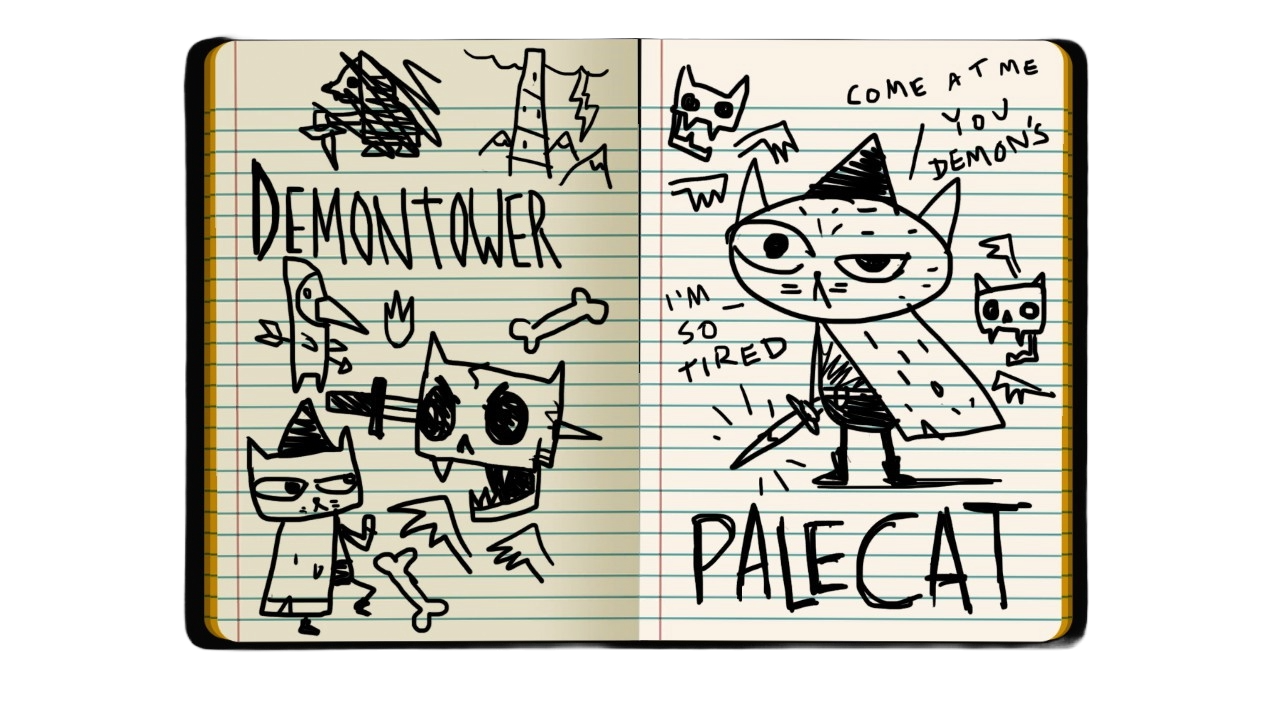 DEMONTOWER
COME AT ME
YOU
DEMON'S
I'M
SO
TIRED
PALECAT